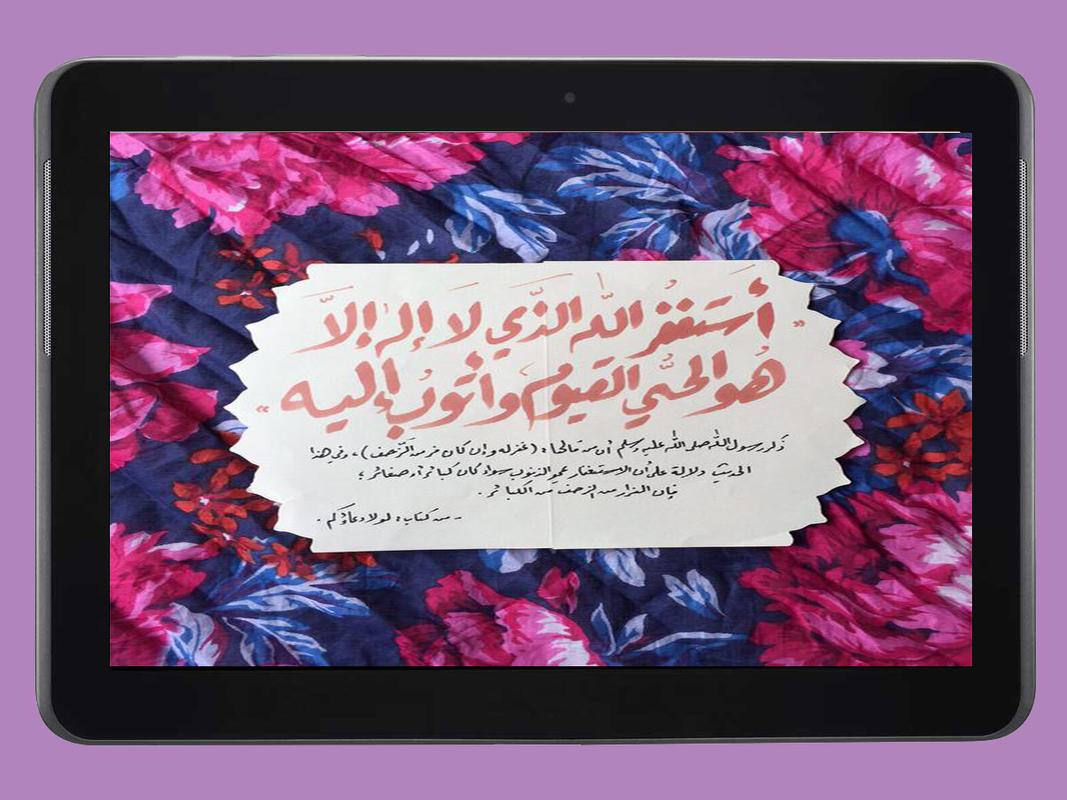 "أَسْتَغْفِرُ اللّٰه الَّذِي لَا إِلٰه إِلَّا
هُوَ الحَيُّ القَيُّومُ وَأَتُوبُ إِلَيه"
ذَكر رسول اللّٰه صلى اللّٰه عليه وسلم أن من قالها: (غفر له وإن كان فر من الزَّحف)، وفي هذا
الحديث دلالة على أن الاستغفار يمحو الذنوب سواء كان كبائر أو صغائر؛
فإن الفرار من الزحف من الكبائر.
- من كتاب: لولا دعاؤكم.